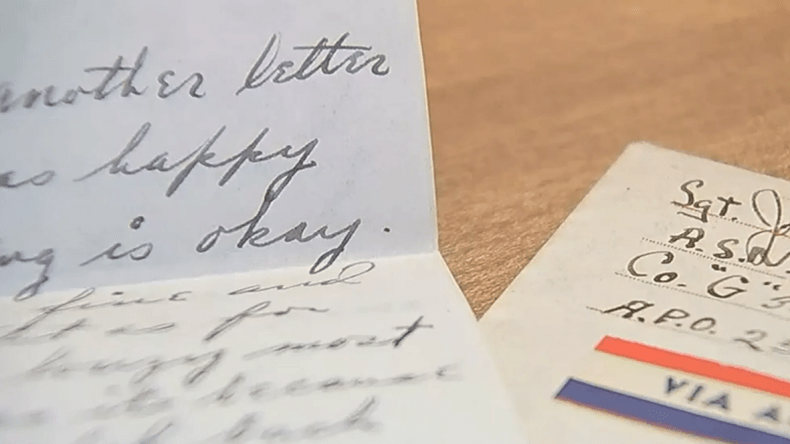 another letter
as happy
ng is okay.
fine and
t as for
lousy most
its because
back
Sgt. J
A.S.N.
Co. "G"
A.P.O. 23
VIA A